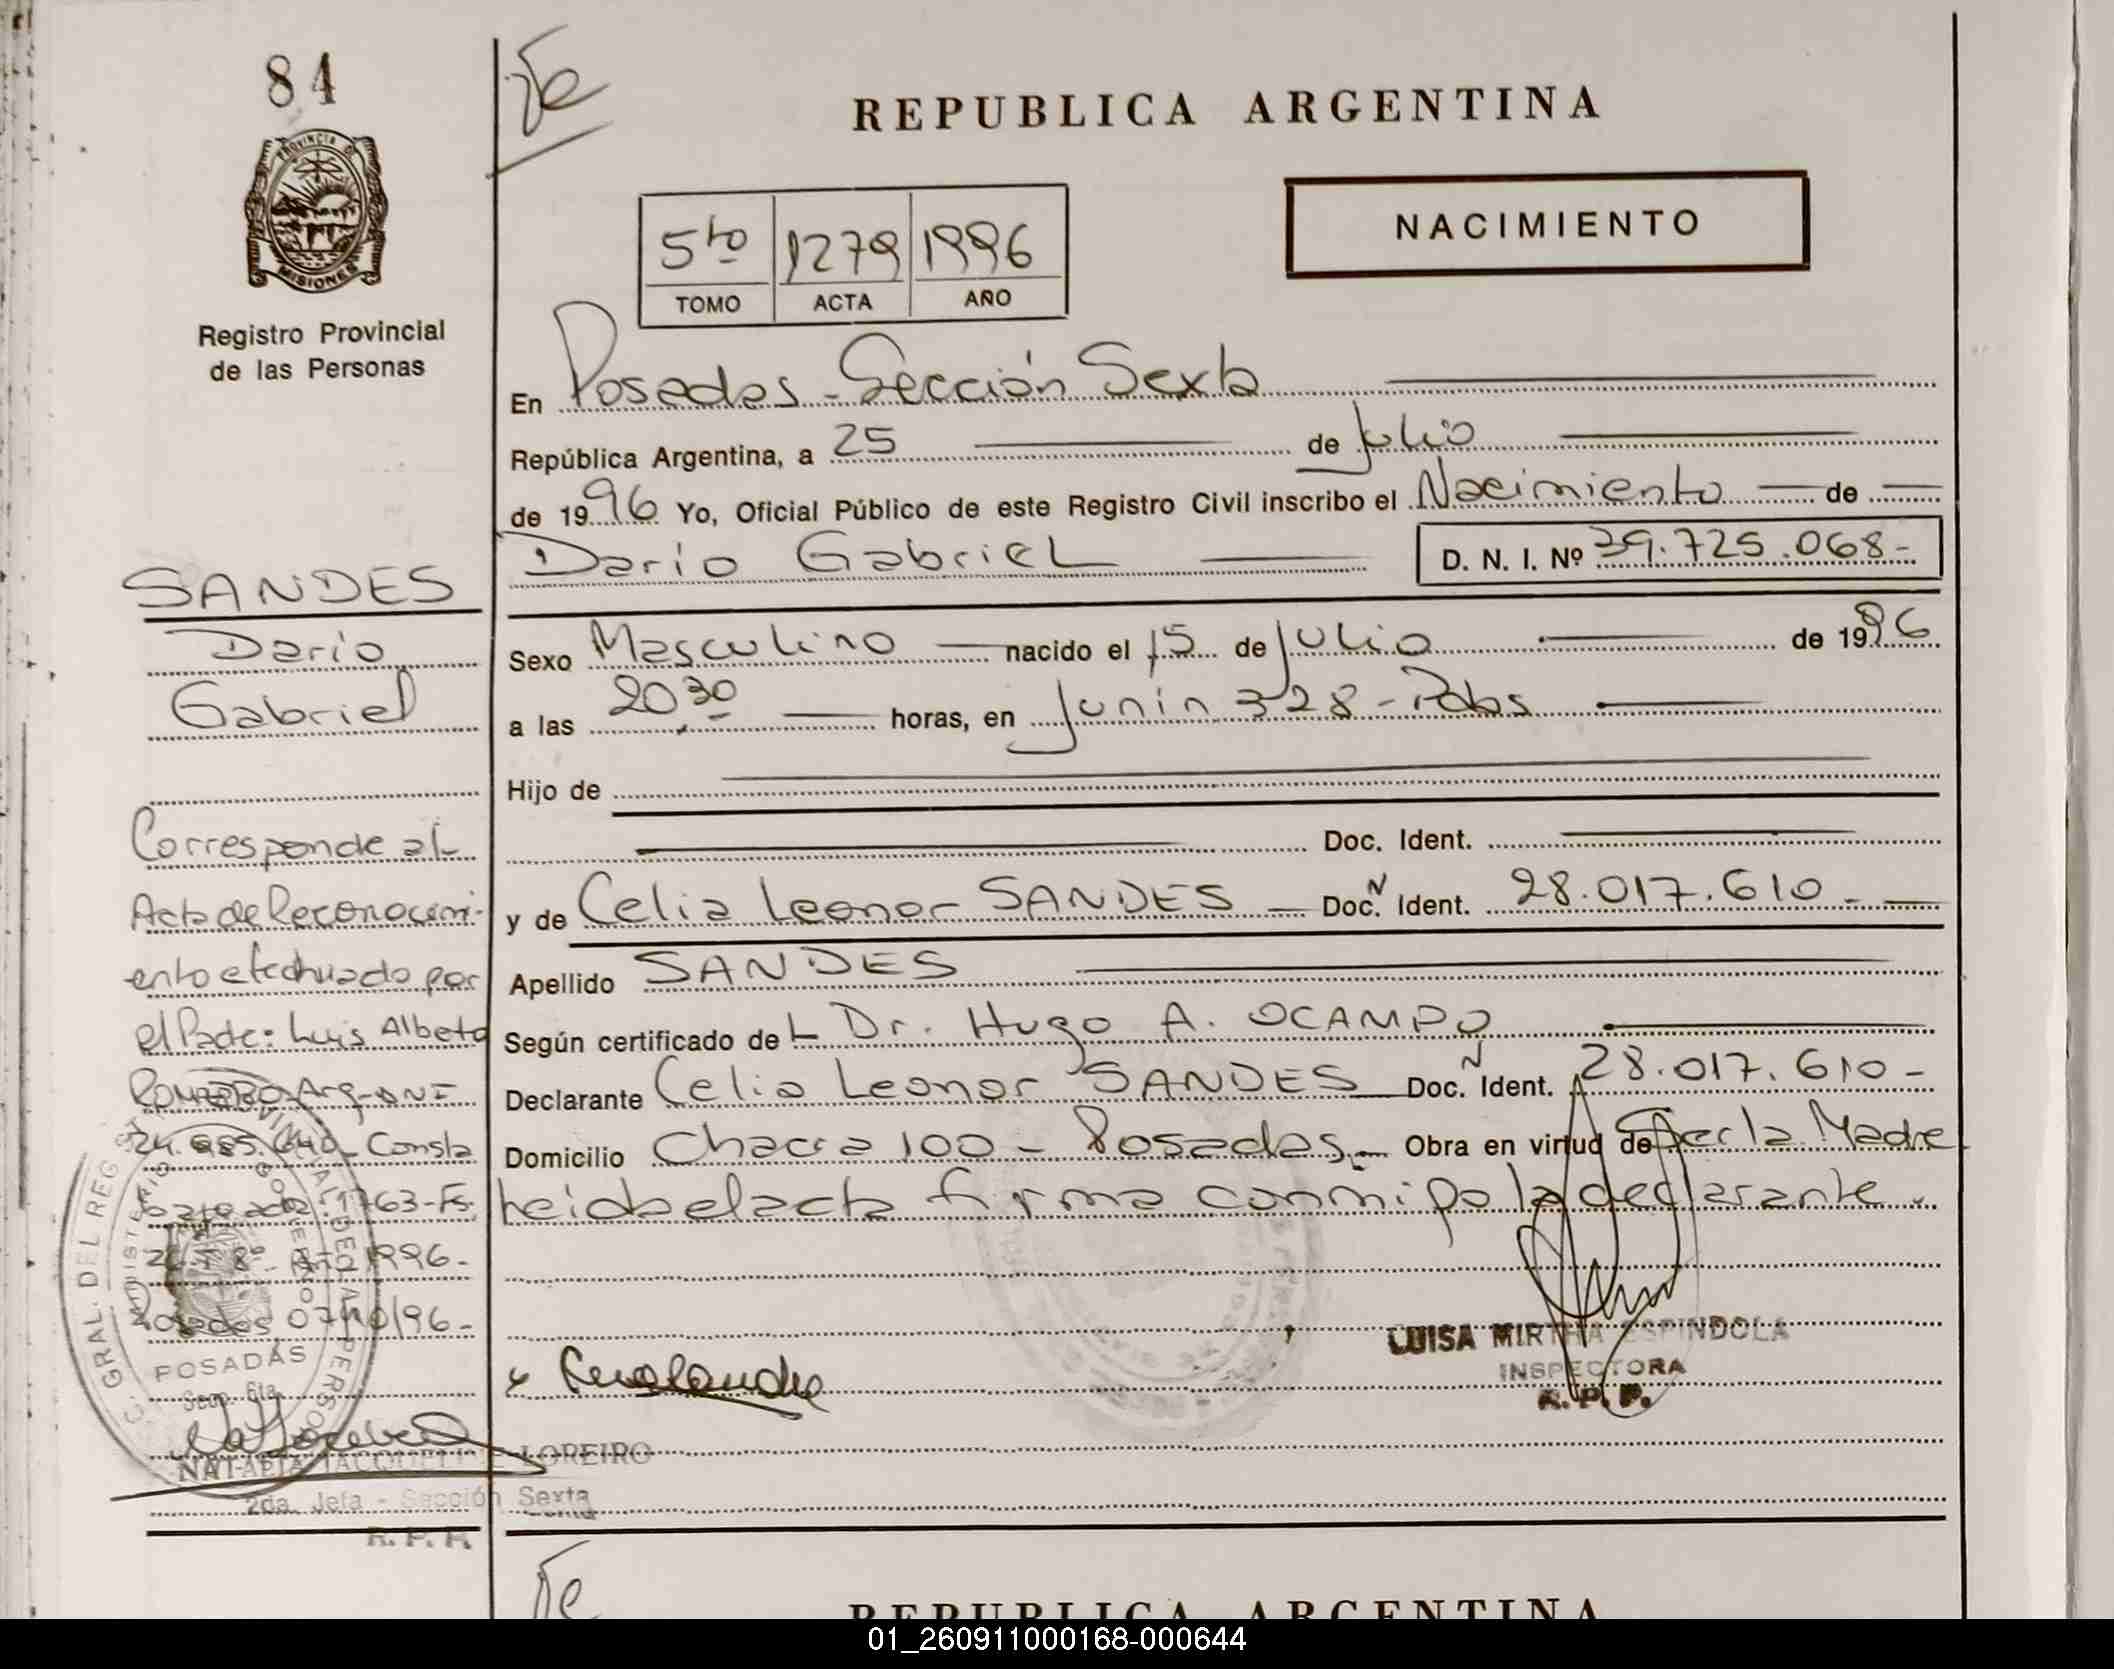 84
PROVINCIA DE
MISIONES
Registro Provincial
de las Personas
REPUBLICA ARGENTINA
NACIMIENTO
5to 1279 1996
TOMO ACTA AÑO
En Posadas - Sección Sexta
República Argentina, a 25 de Julio
de 1996 Yo, Oficial Público de este Registro Civil inscribo el Nacimiento de
Dario Gabriel D. N. I. Nº 39.725.068-
SANDES
Dario
Gabriel
Sexo Masculino nacido el 15 de Julio de 1996
a las 20 30 horas, en Junin 328 - Pdas
Hijo de
Doc. Ident.
y de Celia Leonor SANDES - Doc. N Ident. 28.017.610.-
Apellido SANDES
Según certificado del Dr. Hugo A. OCAMPO
Declarante Celia Leonor SANDES Doc. N Ident. 28.017.610-
Domicilio Chacra 100 - Posadas.- Obra en virtud de Ser la Madre
leida el acta firma conmigo la declarante.-
Corresponde al
Acta de Reconocimi-
ento efectuado por
el Padre: Luis Alberto
ROMERO-Arg-DNI
24. 640- Consta
1763-Fs.
8º- Año 1996-
Posadas, 07/10/96-
POSADAS
Secc. 6ta.
LOREIRO
2da. Jefa - Sección Sexta
R. P. P.
LUISA MIRTHA ESPINDOLA
INSPECTORA
R. P. P.
REPUBLICA ARGENTINA
01_260911000168-000644